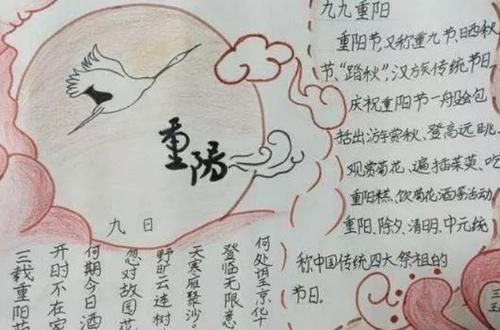 重陽
九日
三载重阳
开时不在家
何期今日酒
忽对故园花
野旷云连树
天寒雁聚沙。
登临无限意
何处京
九九重阳
重阳节,又称重九节、晒秋
节、“踏秋”,汉族传统节日。
庆祝重阳节一般会包
括出游赏秋、登高远眺、
观赏菊花、遍插茱萸、吃
重阳糕、饮菊花酒等活动
重阳、除夕、清明、中元统
称中国传统四大祭祖的
节日.